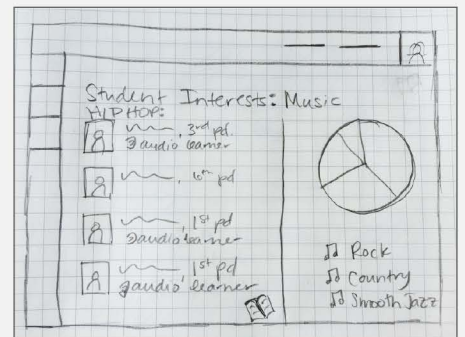 Student Interests: Music
HIP HOP:
, 3rd pd.
audio learner
, 6th pd
, 1st pd
audio learner
, 1st pd
audio learner
Rock
Country
Smooth Jazz